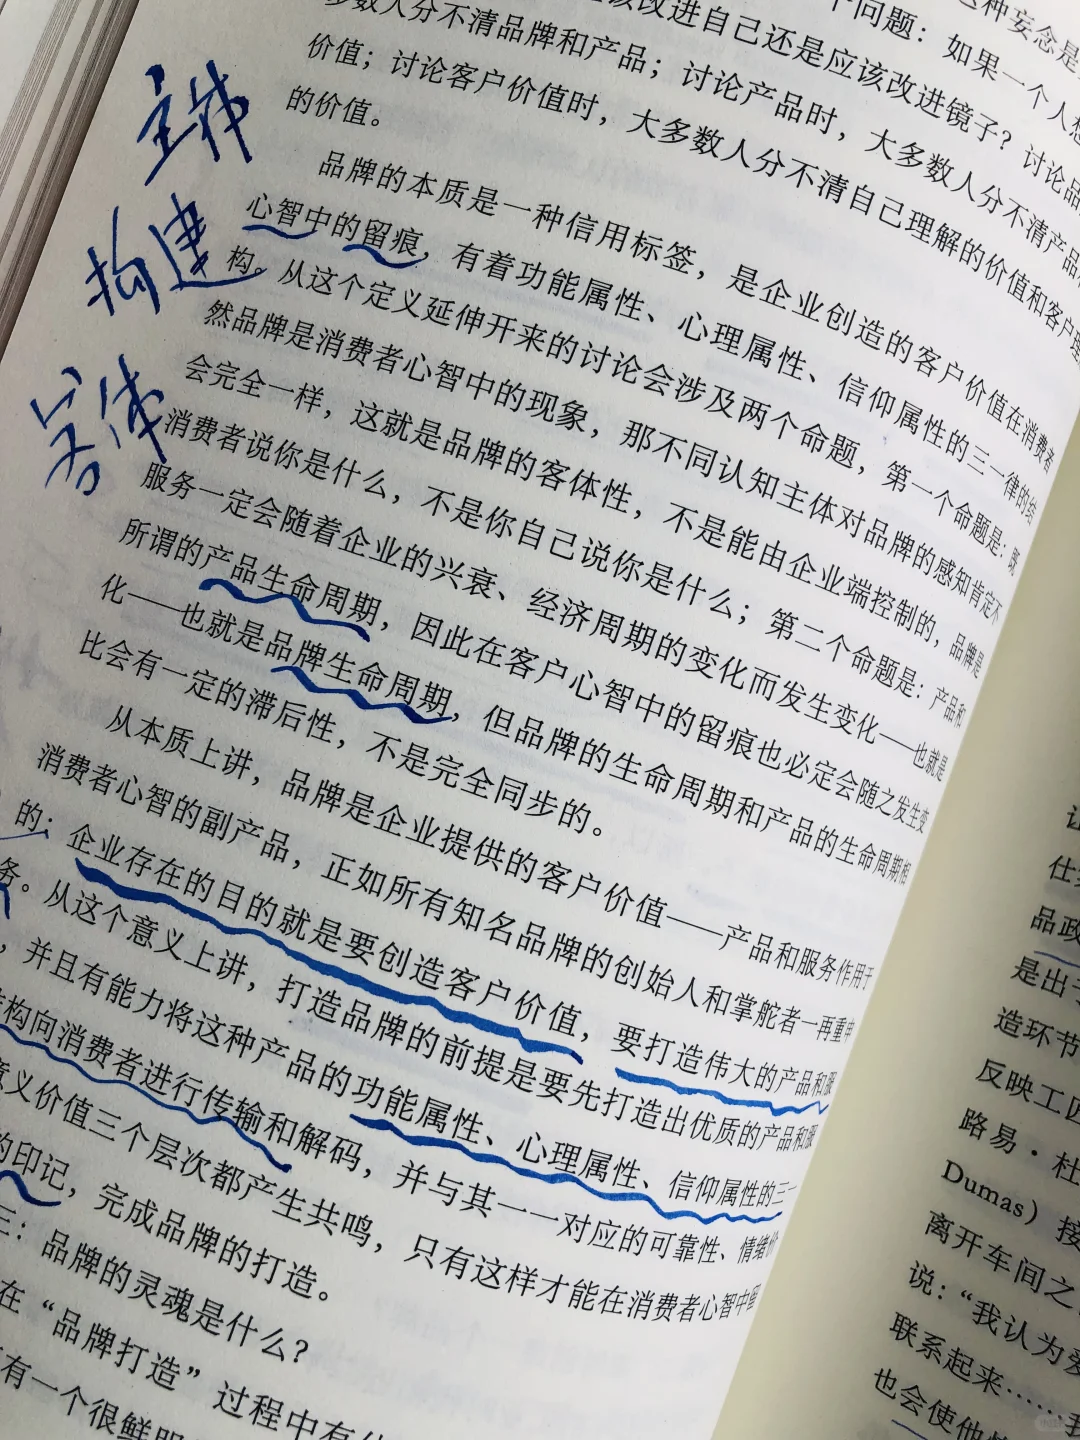 这种妄念是
个问题：如果一个人想
该改进自己还是应该改进镜子？讨论品
多数人分不清品牌和产品；讨论产品时，大多数人分不清产品
价值；讨论客户价值时，大多数人分不清自己理解的价值和客户理
的价值。
品牌的本质是一种信用标签，是企业创造的客户价值在消费者
心智中的留痕，有着功能属性、心理属性、信仰属性的三一律的结
构。从这个定义延伸开来的讨论会涉及两个命题，第一个命题是：既
然品牌是消费者心智中的现象，那不同认知主体对品牌的感知肯定不
会完全一样，这就是品牌的客体性，不是能由企业端控制的，品牌是
消费者说你是什么，不是你自己说你是什么；第二个命题是：产品和
服务一定会随着企业的兴衰、经济周期的变化而发生变化——也就是
所谓的产品生命周期，因此在客户心智中的留痕也必定会随之发生变
化——也就是品牌生命周期，但品牌的生命周期和产品的生命周期相
比会有一定的滞后性，不是完全同步的。
从本质上讲，品牌是企业提供的客户价值——产品和服务作用于
消费者心智的副产品，正如所有知名品牌的创始人和掌舵者一再重申
的：企业存在的目的就是要创造客户价值，要打造伟大的产品和服
务。从这个意义上讲，打造品牌的前提是要先打造出优质的产品和服
，并且有能力将这种产品的功能属性、心理属性、信仰属性的三一
结构向消费者进行传输和解码，并与其一一对应的可靠性、情绪价
意义价值三个层次都产生共鸣，只有这样才能在消费者心智中留
的印记，完成品牌的打造。
三：品牌的灵魂是什么？
在“品牌打造”过程中有
有一个很鲜明
主体
构建
客体
让
仕
品政
是出于
造环节
反映工匠
路易·杜
Dumas）接
离开车间之
说：“我认为爱
联系起来……我
也会使他